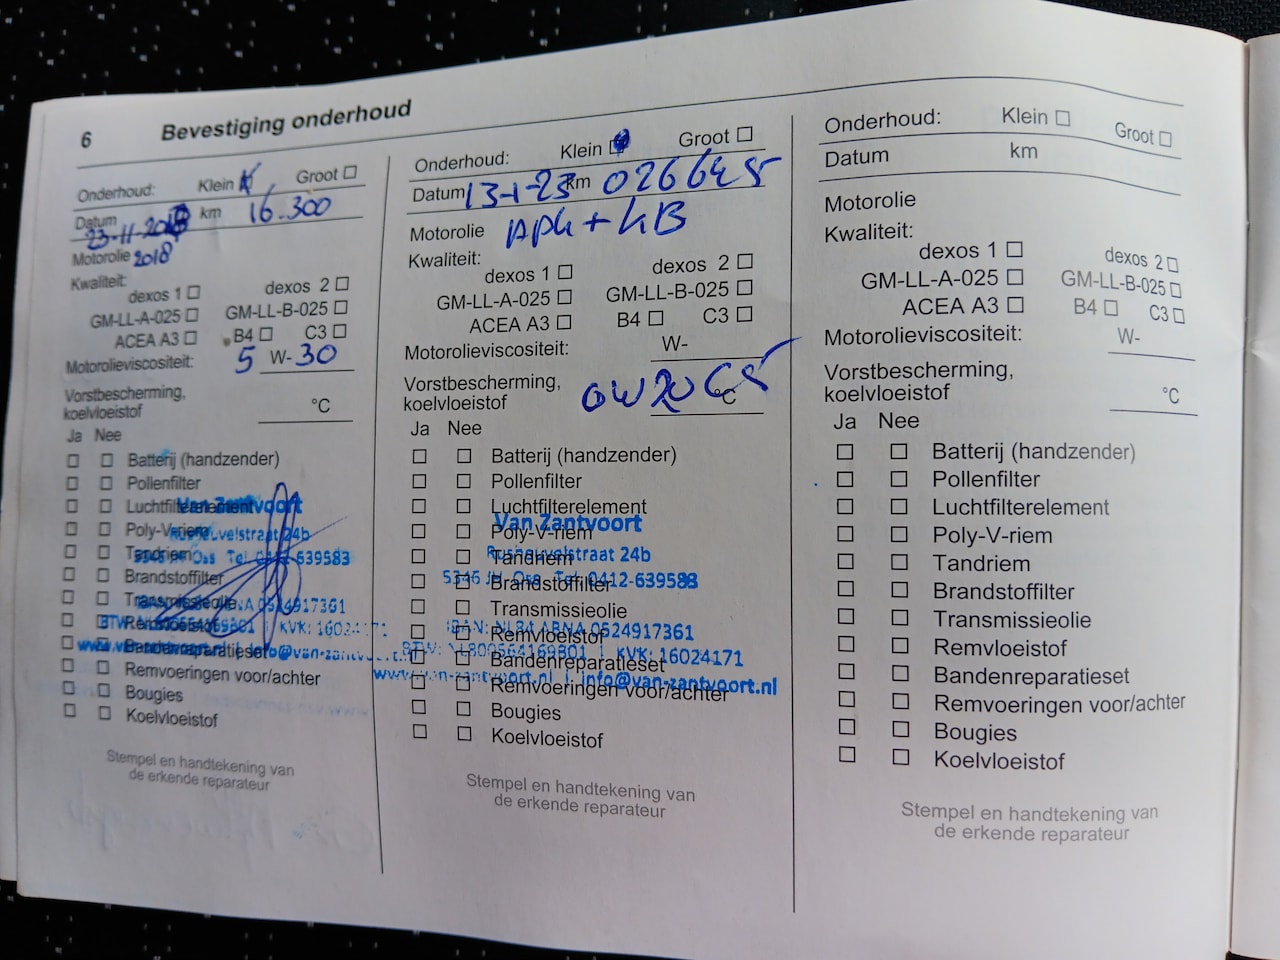 6 Bevestiging onderhoud
Onderhoud: Klein Groot
Datum 23-11-2018 km 16.300
Motorolie 2018
Kwaliteit:
dexos 1 dexos 2
GM-LL-A-025 GM-LL-B-025
ACEA A3 B4 C3
Motorolieviscositeit: 5 W- 30
Vorstbescherming,
koelvloeistof °C
Ja Nee
Batterij (handzender)
Pollenfilter
Luchtfilterelement
Poly-V-riem
Tandriem
Brandstoffilter
Transmissieolie
Remvloeistof
Bandenreparatieset
Remvoeringen voor/achter
Bougies
Koelvloeistof
Van Zantvoort
24b
Oss Tel 0412-639583
0524917361
KVK: 16024171
Stempel en handtekening van
de erkende reparateur
Onderhoud: Klein Groot
Datum 13-1-23 km 026645
Motorolie APK + KB
Kwaliteit:
dexos 1 dexos 2
GM-LL-A-025 GM-LL-B-025
ACEA A3 B4 C3
Motorolieviscositeit: W-
Vorstbescherming,
koelvloeistof 0W20 C5 °C
Ja Nee
Batterij (handzender)
Pollenfilter
Luchtfilterelement
Poly-V-riem
Tandriem
Brandstoffilter
Transmissieolie
Remvloeistof
Bandenreparatieset
Remvoeringen voor/achter
Bougies
Koelvloeistof
Van Zantvoort
24b
5346 Oss Tel 0412-639583
IBAN: NL84 ABNA 0524917361
KVK: 16024171
www.van-zantvoort.nl | info@van-zantvoort.nl
Stempel en handtekening van
de erkende reparateur
Onderhoud: Klein Groot
Datum km
Motorolie
Kwaliteit:
dexos 1 dexos 2
GM-LL-A-025 GM-LL-B-025
ACEA A3 B4 C3
Motorolieviscositeit: W-
Vorstbescherming,
koelvloeistof °C
Ja Nee
Batterij (handzender)
Pollenfilter
Luchtfilterelement
Poly-V-riem
Tandriem
Brandstoffilter
Transmissieolie
Remvloeistof
Bandenreparatieset
Remvoeringen voor/achter
Bougies
Koelvloeistof
Stempel en handtekening van
de erkende reparateur